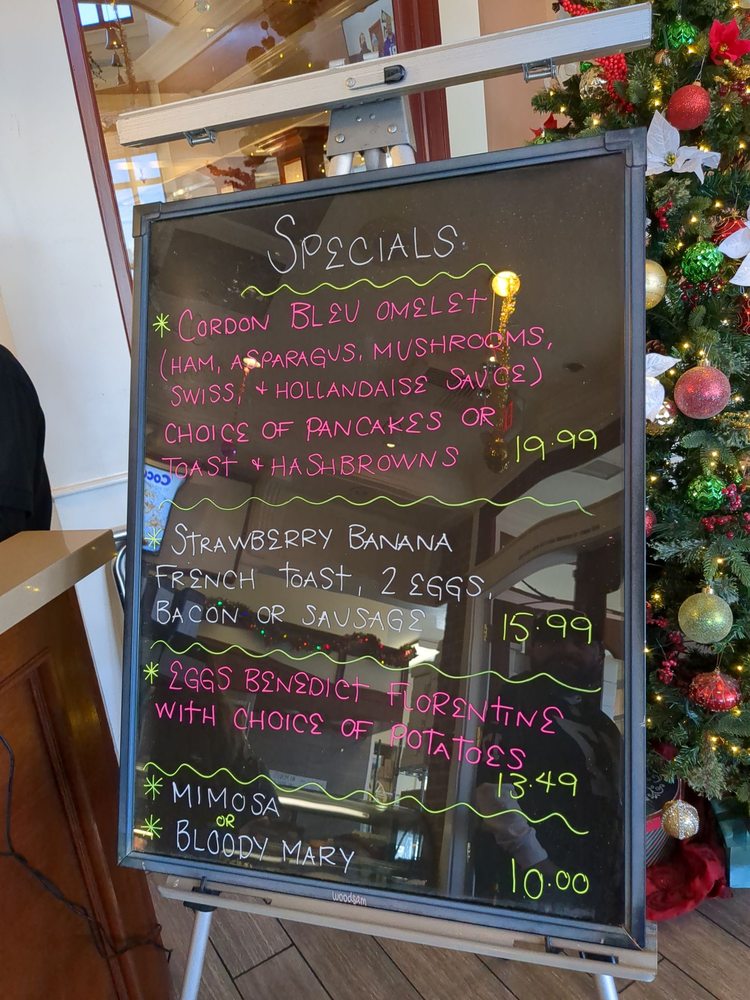 SPECIALS
* CORDON BLEU OMELET
(HAM, ASPARAGUS, MUSHROOMS,
SWISS, + HOLLANDAISE SAUCE)
CHOICE OF PANCAKES OR
TOAST + HASHBROWNS 19.99
* STRAWBERRY BANANA
FRENCH TOAST, 2 EGGS,
BACON OR SAUSAGE 15.99
* EGGS BENEDICT FLORENTINE
WITH CHOICE OF POTATOES
13.49
* MIMOSA
OR
* BLOODY MARY 10.00
woodsam